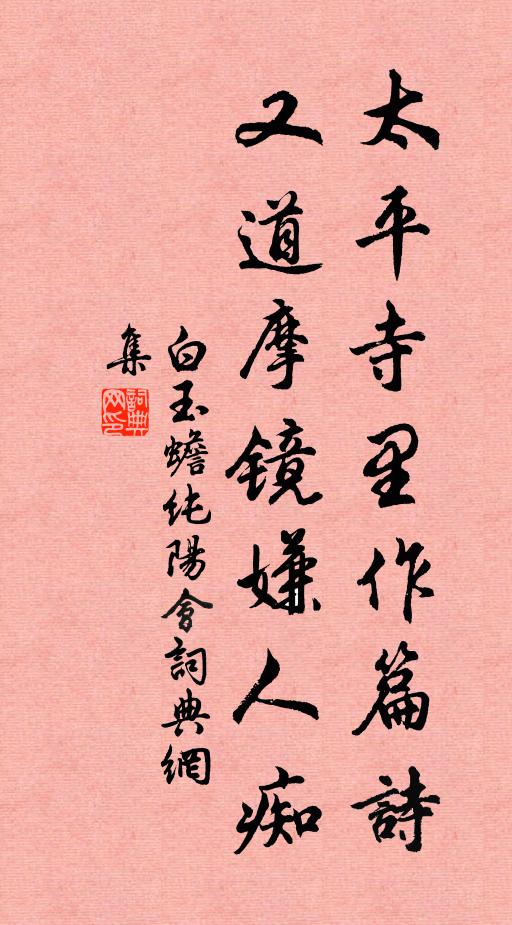 太平寺里作篇詩
又道摩镜嫌人痴
白玉蟾纯陽會詞典網
集
詞典網印